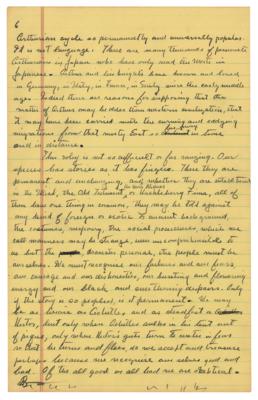 6
Arthurian cycle so permanently and universally popular.
It is not language. There are many thousands of passionate
Arthurians in Japan who have only read the stories in
Japanese. Arthur and his knights have been known and loved
in Germany, in Italy, in France, in Sicily since the early middle
ages. Indeed there are reasons for supposing that the
matter of Arthur may be older than western civilization, that
it may have been carried with the surging and edging
migrations from that misty East so far away in time
and in distance.
This why is not so difficult or far ranging. Our
species has stories as it has fingers. There they are,
permanent and unchanging, and whether they are attached
to the Iliad, the Old Testament, or Huckleberry Finn, all of
them have one thing in common, they may be told against
any kind of foreign or exotic or ancient background,
the costumes, weapons, the social procedures, which we
call manners may be strange, even incomprehensible to
us but the persons, the people must be
ourselves. We must recognize our failures and our fears,
our courage and our dishonesties, our bursting and flowering
energy and our black and smothering despairs. Only
if the story is so peopled, is it permanent. We may
be as brave as Achilles, and as steadfast as
Hector, but only when Achilles sulks in his tent out
of pique, only when Hector's guts turn to water in fear
so that he turns and flees, do we accept and treasure
perhaps because we recognize our selves good and
bad. If the all good or all bad we are skeptical.